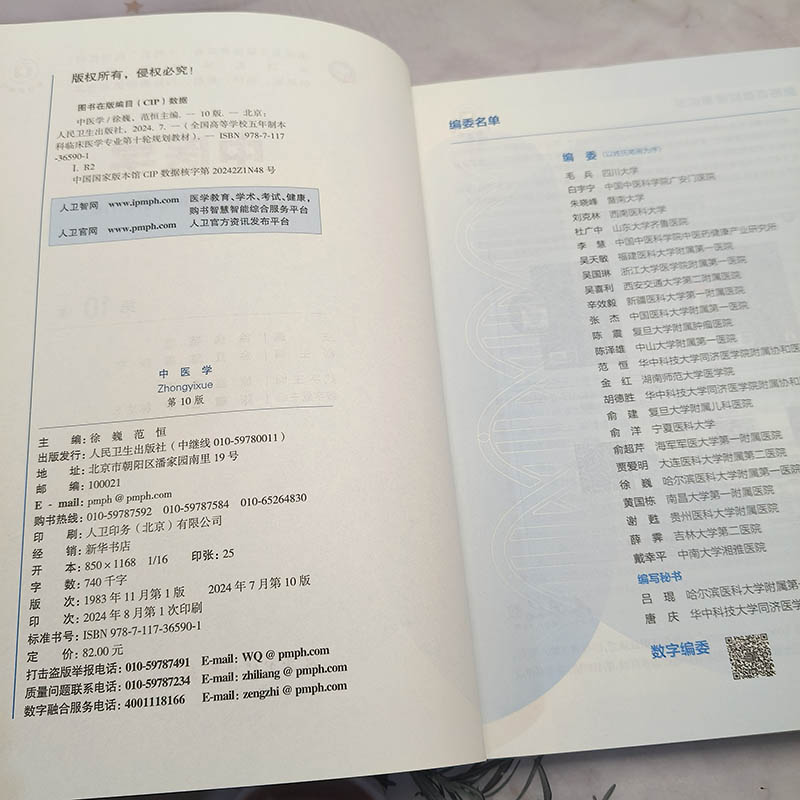 版权所有，侵权必究！
图书在版编目（CIP）数据
中医学 / 徐巍，范恒主编. — 10 版. — 北京：
人民卫生出版社，2024. 7. —（全国高等学校五年制本
科临床医学专业第十轮规划教材）. — ISBN 978-7-117
-36590-1
I. R2
中国国家版本馆 CIP 数据核字第 20242Z1N48 号
人卫智网 www.ipmph.com 医学教育、学术、考试、健康，
购书智慧智能综合服务平台
人卫官网 www.pmph.com 人卫官方资讯发布平台
中 医 学
Zhongyixue
第 10 版
主 编：徐 巍 范 恒
出版发行：人民卫生出版社（中继线 010-59780011）
地 址：北京市朝阳区潘家园南里 19 号
邮 编：100021
E - mail：pmph @ pmph.com
购书热线：010-59787592 010-59787584 010-65264830
印 刷：人卫印务（北京）有限公司
经 销：新华书店
开 本：850×1168 1/16 印张：25
字 数：740 千字
版 次：1983 年 11 月第 1 版 2024 年 7 月第 10 版
印 次：2024 年 8 月第 1 次印刷
标准书号：ISBN 978-7-117-36590-1
定 价：82.00 元
打击盗版举报电话：010-59787491 E-mail：WQ @ pmph.com
质量问题联系电话：010-59787234 E-mail：zhiliang @ pmph.com
数字融合服务电话：4001118166 E-mail：zengzhi @ pmph.com
编委名单
编 委（以姓氏笔画为序）
毛 兵 四川大学
白宇宁 中国中医科学院广安门医院
朱晓峰 暨南大学
刘克林 西南医科大学
杜广中 山东大学齐鲁医院
李 慧 中国中医科学院中医药健康产业研究所
吴天敏 福建医科大学附属第一医院
吴国琳 浙江大学医学院附属第一医院
吴喜利 西安交通大学第二附属医院
辛效毅 新疆医科大学第一附属医院
张 杰 中国医科大学附属第一医院
陈 震 复旦大学附属肿瘤医院
陈泽雄 中山大学附属第一医院
范 恒 华中科技大学同济医学院附属协和医
金 红 湖南师范大学医学院
胡德胜 华中科技大学同济医学院附属协和
俞 建 复旦大学附属儿科医院
俞 洋 宁夏医科大学
俞超芹 海军军医大学第一附属医院
贾爱明 大连医科大学附属第二医院
徐 巍 哈尔滨医科大学附属第一医院
黄国栋 南昌大学第一附属医院
谢 甦 贵州医科大学附属医院
薛 霁 吉林大学第二医院
戴幸平 中南大学湘雅医院
编写秘书
吕 琨 哈尔滨医科大学附属第一
唐 庆 华中科技大学同济医学
数字编委